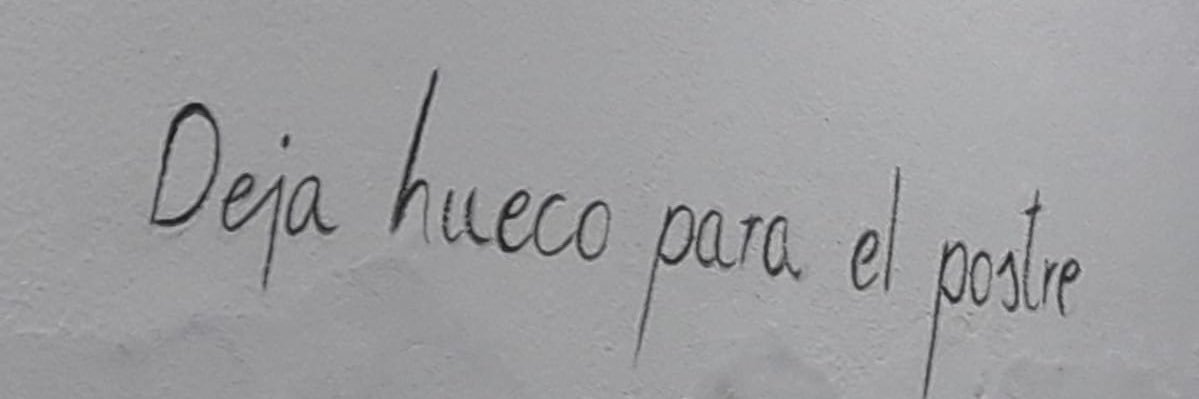 Deja hueco para el postre